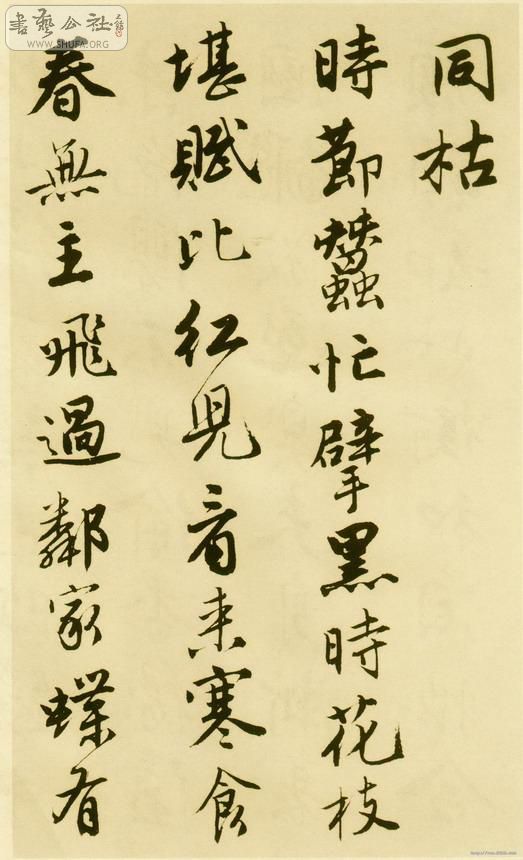 書藝公社
WWW.SHUFA.ORG
同枯
時節蠶忙擘黑時花枝
堪賦比紅兒看来寒食
春無主飛過鄰家蝶有